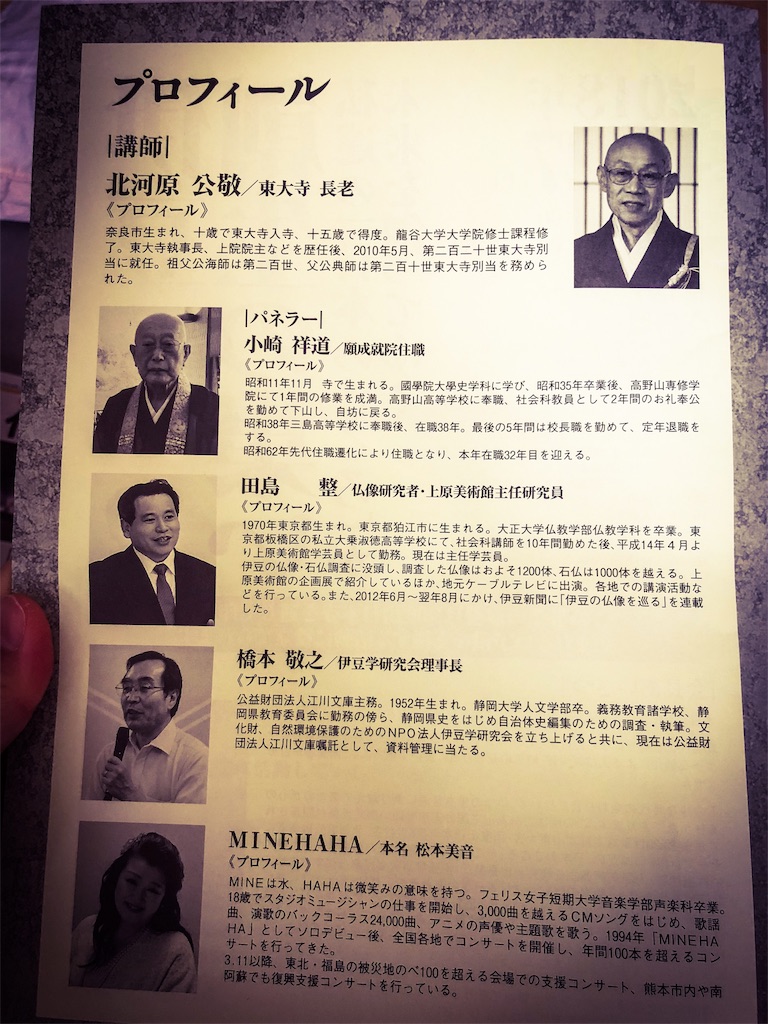 プロフィール
|講師|
北河原 公敬／東大寺 長老
《プロフィール》
奈良市生まれ、十歳で東大寺入寺、十五歳で得度。龍谷大学大学院修士課程修
了。東大寺執事長、上院院主などを歴任後、2010年5月、第二百二十世東大寺別
当に就任。祖父公海師は第二百世、父公典師は第二百十世東大寺別当を務めら
れた。
|パネラー|
小崎 祥道／願成就院住職
《プロフィール》
昭和11年11月 寺で生まれる。國學院大學史学科に学び、昭和35年卒業後、高野山専修学
院にて1年間の修業を成満。高野山高等学校に奉職、社会科教員として2年間のお礼奉公
を勤めて下山し、自坊に戻る。
昭和38年三島高等学校に奉職後、在職38年。最後の5年間は校長職を勤めて、定年退職を
する。
昭和62年先代住職遷化により住職となり、本年在職32年目を迎える。
田島 整／仏像研究者・上原美術館主任研究員
《プロフィール》
1970年東京都生まれ。東京都狛江市に生まれる。大正大学仏教学部仏教学科を卒業。東
京都板橋区の私立大乗淑徳高等学校にて、社会科講師を10年間勤めた後、平成14年４月よ
り上原美術館学芸員として勤務。現在は主任学芸員。
伊豆の仏像・石仏調査に没頭し、調査した仏像はおよそ1200体、石仏は1000体を越える。上
原美術館の企画展で紹介しているほか、地元ケーブルテレビに出演。各地での講演活動な
どを行っている。また、2012年6月～翌年8月にかけ、伊豆新聞に「伊豆の仏像を巡る」を連載
した。
橋本 敬之／伊豆学研究会理事長
《プロフィール》
公益財団法人江川文庫主務。1952年生まれ。静岡大学人文学部卒。義務教育諸学校、静
岡県教育委員会に勤務の傍ら、静岡県史をはじめ自治体史編集のための調査・執筆。文
化財、自然環境保護のためのNPO法人伊豆学研究会を立ち上げると共に、現在は公益財
団法人江川文庫嘱託として、資料管理に当たる。
MINEHAHA／本名 松本美音
《プロフィール》
MINEは水、HAHAは微笑みの意味を持つ。フェリス女子短期大学音楽学部声楽科卒業。
18歳でスタジオミュージシャンの仕事を開始し、3,000曲を越えるCMソングをはじめ、歌謡
曲、演歌のバックコーラス24,000曲、アニメの声優や主題歌を歌う。1994年「MINEHA
HA」としてソロデビュー後、全国各地でコンサートを開催し、年間100本を超えるコン
サートを行ってきた。
3.11以降、東北・福島の被災地のべ100を超える会場での支援コンサート、熊本市内や南
阿蘇でも復興支援コンサートを行っている。